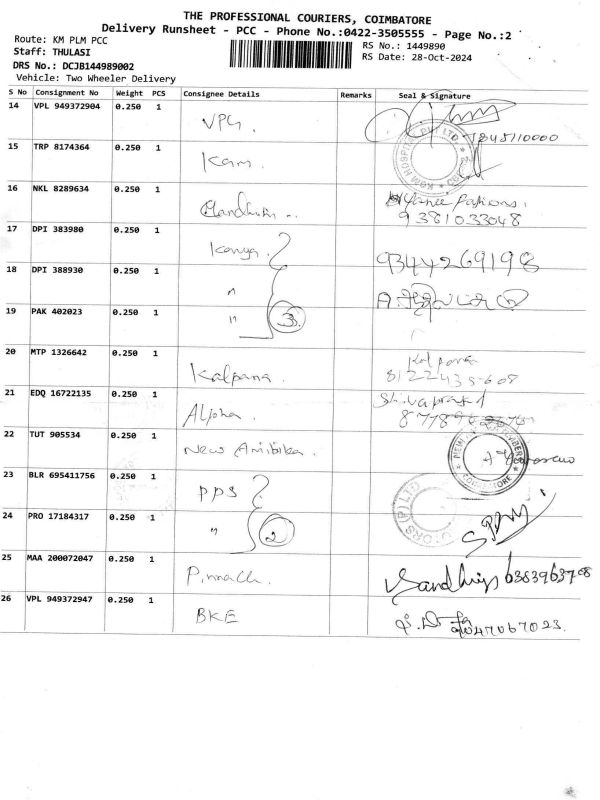 THE PROFESSIONAL COURIERS, COIMBATORE
Delivery Runsheet - PCC - Phone No.:0422-3505555 - Page No.:2
Route: KM PLM PCC
RS No.: 1449890
Staff: THULASI
RS Date: 28-Oct-2024
DRS No.: DCJB144989002
Vehicle: Two Wheeler Delivery
S No Consignment No Weight PCS Consignee Details Remarks Seal & Signature
14 VPL 949372904 0.250 1 VPG.
15 TRP 8174364 0.250 1 Kam.
16 NKL 8289634 0.250 1
9381033048
17 DPI 383980 0.250 1 Kanya. 9344269198
18 DPI 388930 0.250 1 "
19 PAK 402023 0.250 1 " 3
20 MTP 1326642 0.250 1 Kalpana. Kalpana
8122435608
21 EDQ 16722135 0.250 1 Alpha.
22 TUT 905534 0.250 1 New Ambika.
23 BLR 695411756 0.250 1 PPS
24 PRO 17184317 0.250 1 " 2
25 MAA 200072047 0.250 1 6383963708
26 VPL 949372947 0.250 1 BKE
9047067023.